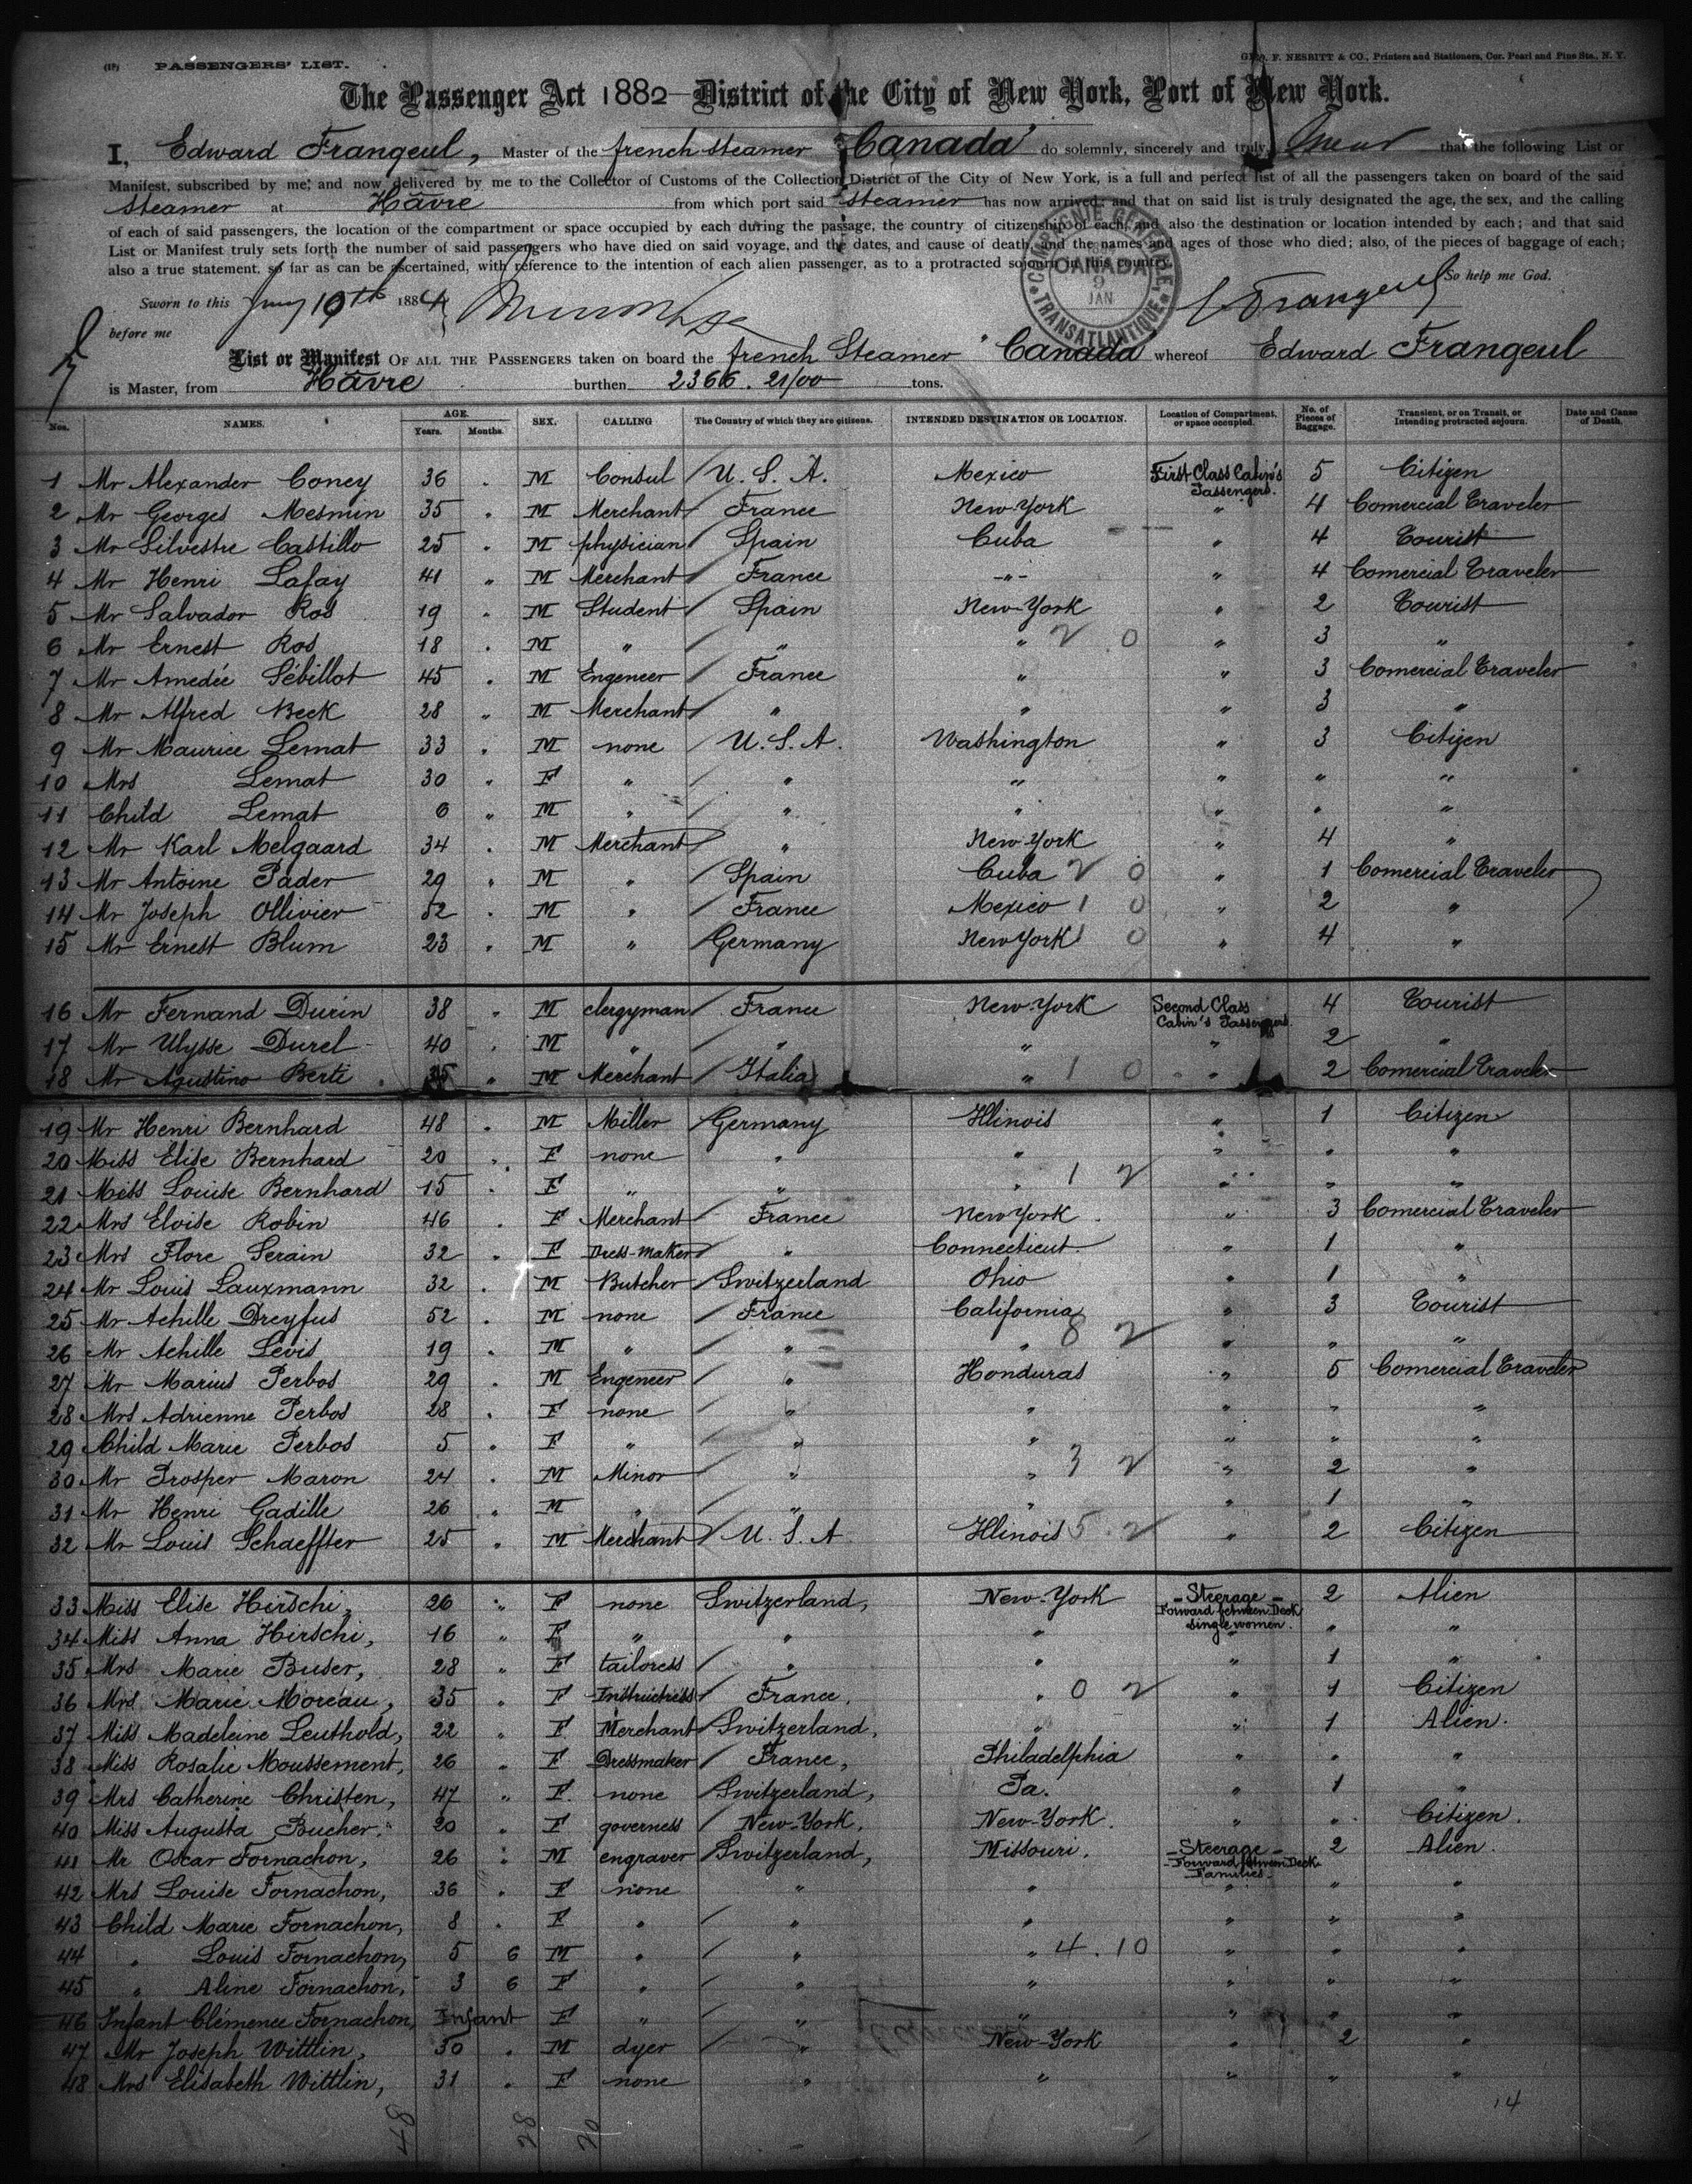 (19) PASSENGERS' LIST.
GEO. F. NESBITT & CO., Printers and Stationers, Cor. Pearl and Pine Sts., N. Y.
The Passenger Act 1882 District of the City of New York, Port of New York.
I, Edward Frangeul, Master of the french steamer "Canada" do solemnly, sincerely and truly Swear that the following List or
Manifest, subscribed by me, and now delivered by me to the Collector of Customs of the Collection District of the City of New York, is a full and perfect list of all the passengers taken on board of the said
steamer at Havre from which port said steamer has now arrived; and that on said list is truly designated the age, the sex, and the calling
of each of said passengers, the location of the compartment or space occupied by each during the passage, the country of citizenship of each, and also the destination or location intended by each; and that said
List or Manifest truly sets forth the number of said passengers who have died on said voyage, and the dates, and cause of death, and the names and ages of those who died; also, of the pieces of baggage of each;
also a true statement, so far as can be ascertained, with reference to the intention of each alien passenger, as to a protracted sojourn in this country.
So help me God.
COMPAGNIE GENERALE TRANSATLANTIQUE
CANADA
9
JAN
Sworn to this Jany 10th 1884 E Frangeul
before me
List or Manifest OF ALL THE PASSENGERS taken on board the french Steamer "Canada" whereof Edward Frangeul
is Master, from Havre burthen 2366. 21/00 tons.
Nos. NAMES. AGE. Years. Months. SEX. CALLING The Country of which they are citizens. INTENDED DESTINATION OR LOCATION. Location of Compartment, or space occupied. No. of Pieces of Baggage. Transient, or on Transit, or Intending protracted sojourn. Date and Cause of Death.
1 Mr Alexander Coney 36 . M Consul U. S. A. Mexico First Class Cabin's Passengers. 5 Citizen
2 Mr Georges Mesmin 35 . M Merchant France New-York " 4 Comercial Traveler
3 Mr Silvestre Castillo 25 . M physician Spain Cuba " 4 Tourist
4 Mr Henri Lafay 41 " M Merchant France -"- " 4 Comercial Traveler
5 Mr Salvador Ros 19 . M Student Spain New-York " 2 Tourist
6 Mr Ernest Ros 18 . M " " " 2 0 " 3 "
7 Mr Amedée Sébillot 45 . M Engeneer France " " 3 Comercial Traveler
8 Mr Alfred Beck 28 " M Merchant " " " 3 "
9 Mr Maurice Lemat 33 . M none U. S. A. Washington " 3 Citizen
10 Mrs Lemat 30 . F " " " " " "
11 Child Lemat 6 " M " " " " " "
12 Mr Karl Melgaard 34 . M Merchant " New-York " 4 "
13 Mr Antoine Pader 29 . M " Spain Cuba 2 0 " 1 Comercial Traveler
14 Mr Joseph Ollivier 52 . M " France Mexico 1 0 " 2 "
15 Mr Ernest Blum 23 . M " Germany New York 1 0 " 4 "
16 Mr Fernand Durin 38 " M clergyman France New-York Second Class Cabin's Passengers. 4 Tourist
17 Mr Ulysse Durel 40 . M " " " " 2 "
18 Mr Agustino Berti 35 " M Merchant Italia " 1 0 " 2 Comercial Traveler
19 Mr Henri Bernhard 48 . M Miller Germany Illinois " 1 Citizen
20 Miss Elise Bernhard 20 " F none " " " " "
21 Miss Louise Bernhard 15 . F " " " 1 2 " " "
22 Mrs Eloise Robin 46 . F Merchant France New York " 3 Comercial Traveler
23 Mrs Flore Serain 32 . F Dress-maker " Connecticut " 1 "
24 Mr Louis Lauxmann 32 . M Butcher Switzerland Ohio " 1 "
25 Mr Achille Dreyfus 52 . M none France California " 3 Tourist
26 Mr Achille Levis 19 . M " " " 8 2 " " "
27 Mr Marius Perbos 29 . M Engeneer " Honduras " 5 Comercial Traveler
28 Mrs Adrienne Perbos 28 . F none " " " " "
29 Child Marie Perbos 5 . F " " " " " "
30 Mr Prosper Maron 24 . M Minor " " 3 2 " 2 "
31 Mr Henri Gadille 26 . M " " " " 1 "
32 Mr Louis Schaeffter 25 . M Merchant U. S. A Illinois 5 2 " 2 Citizen
33 Miss Elise Hirschi, 26 " F none Switzerland, New-York - Steerage - Forward between Deck single women. 2 Alien
34 Miss Anna Hirschi, 16 " F " " " " " "
35 Mrs Marie Buser, 28 " F tailoress " " " 1 "
36 Mrs Marie Moreau, 35 " F Instructress France. " 0 2 " 1 Citizen
37 Miss Madeleine Leuthold, 22 " F Merchant Switzerland, " " 1 Alien.
38 Miss Rosalie Moussement, 26 " F Dressmaker France, Philadelphia " " "
39 Mrs Catherine Christen, 47 " F. none Switzerland, Pa. " 1 "
40 Miss Augusta Bucher. 20 . F governess New-York. New-York. " " Citizen.
41 Mr Oscar Fornachon, 26 . M engraver Switzerland, Missouri. - Steerage - Forward between Deck Families. 2 Alien.
42 Mrs Louise Fornachon, 36 . F none " " " " "
43 Child Marie Fornachon, 8 . F " " " " " "
44 " Louis Fornachon, 5 6 M " " " 4.10 " " "
45 " Aline Fornachon, 3 6 F " " " " " "
46 Infant Clémence Fornachon, Infant F " " " " " "
47 Mr Joseph Wittlin, 30 . M dyer " New-York " 2 "
48 Mrs Elisabeth Wittlin, 31 . F none " " " " "
14
48 28 20